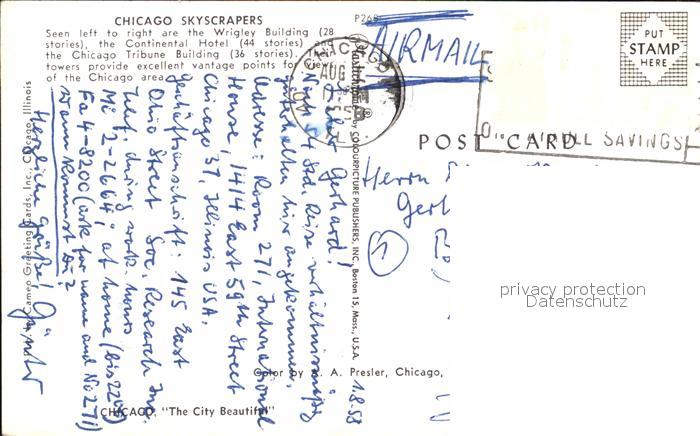 CHICAGO SKYSCRAPERS
Seen left to right are the Wrigley Building (28
stories), the Continental Hotel (44 stories) and
the Chicago Tribune Building (36 stories). Their
towers provide excellent vantage points for views
of the Chicago area.
P268
AIRMAIL
CHICAGO
AUG
PUT
STAMP
HERE
POST CARD
SAVINGS
Cameo Greeting Cards, Inc., Chicago, Illinois
by COLOURPICTURE PUBLISHERS, INC., Boston 15, Mass., U.S.A.
1.8.58
Gerhard!
Nach 54 Std. Reise verhältnismäßig
hier angekommen.
Adresse: Room 271, International
House, 1414 East 59th Street
Chicago 37, Illinois USA.
Geschäftsanschrift: 145 East
Ohio Street Soc. Research Inc.
Tel. during work. hours
Mi 2-2664; at home (bis 22°°)
Fa 4-8200 (ask for name and No 271)
Wann kommst Du?
Herzliche Grüße! Günter
Herrn
5
privacy protection
Datenschutz
Color by A. Presler, Chicago,
CHICAGO, "The City Beautiful"